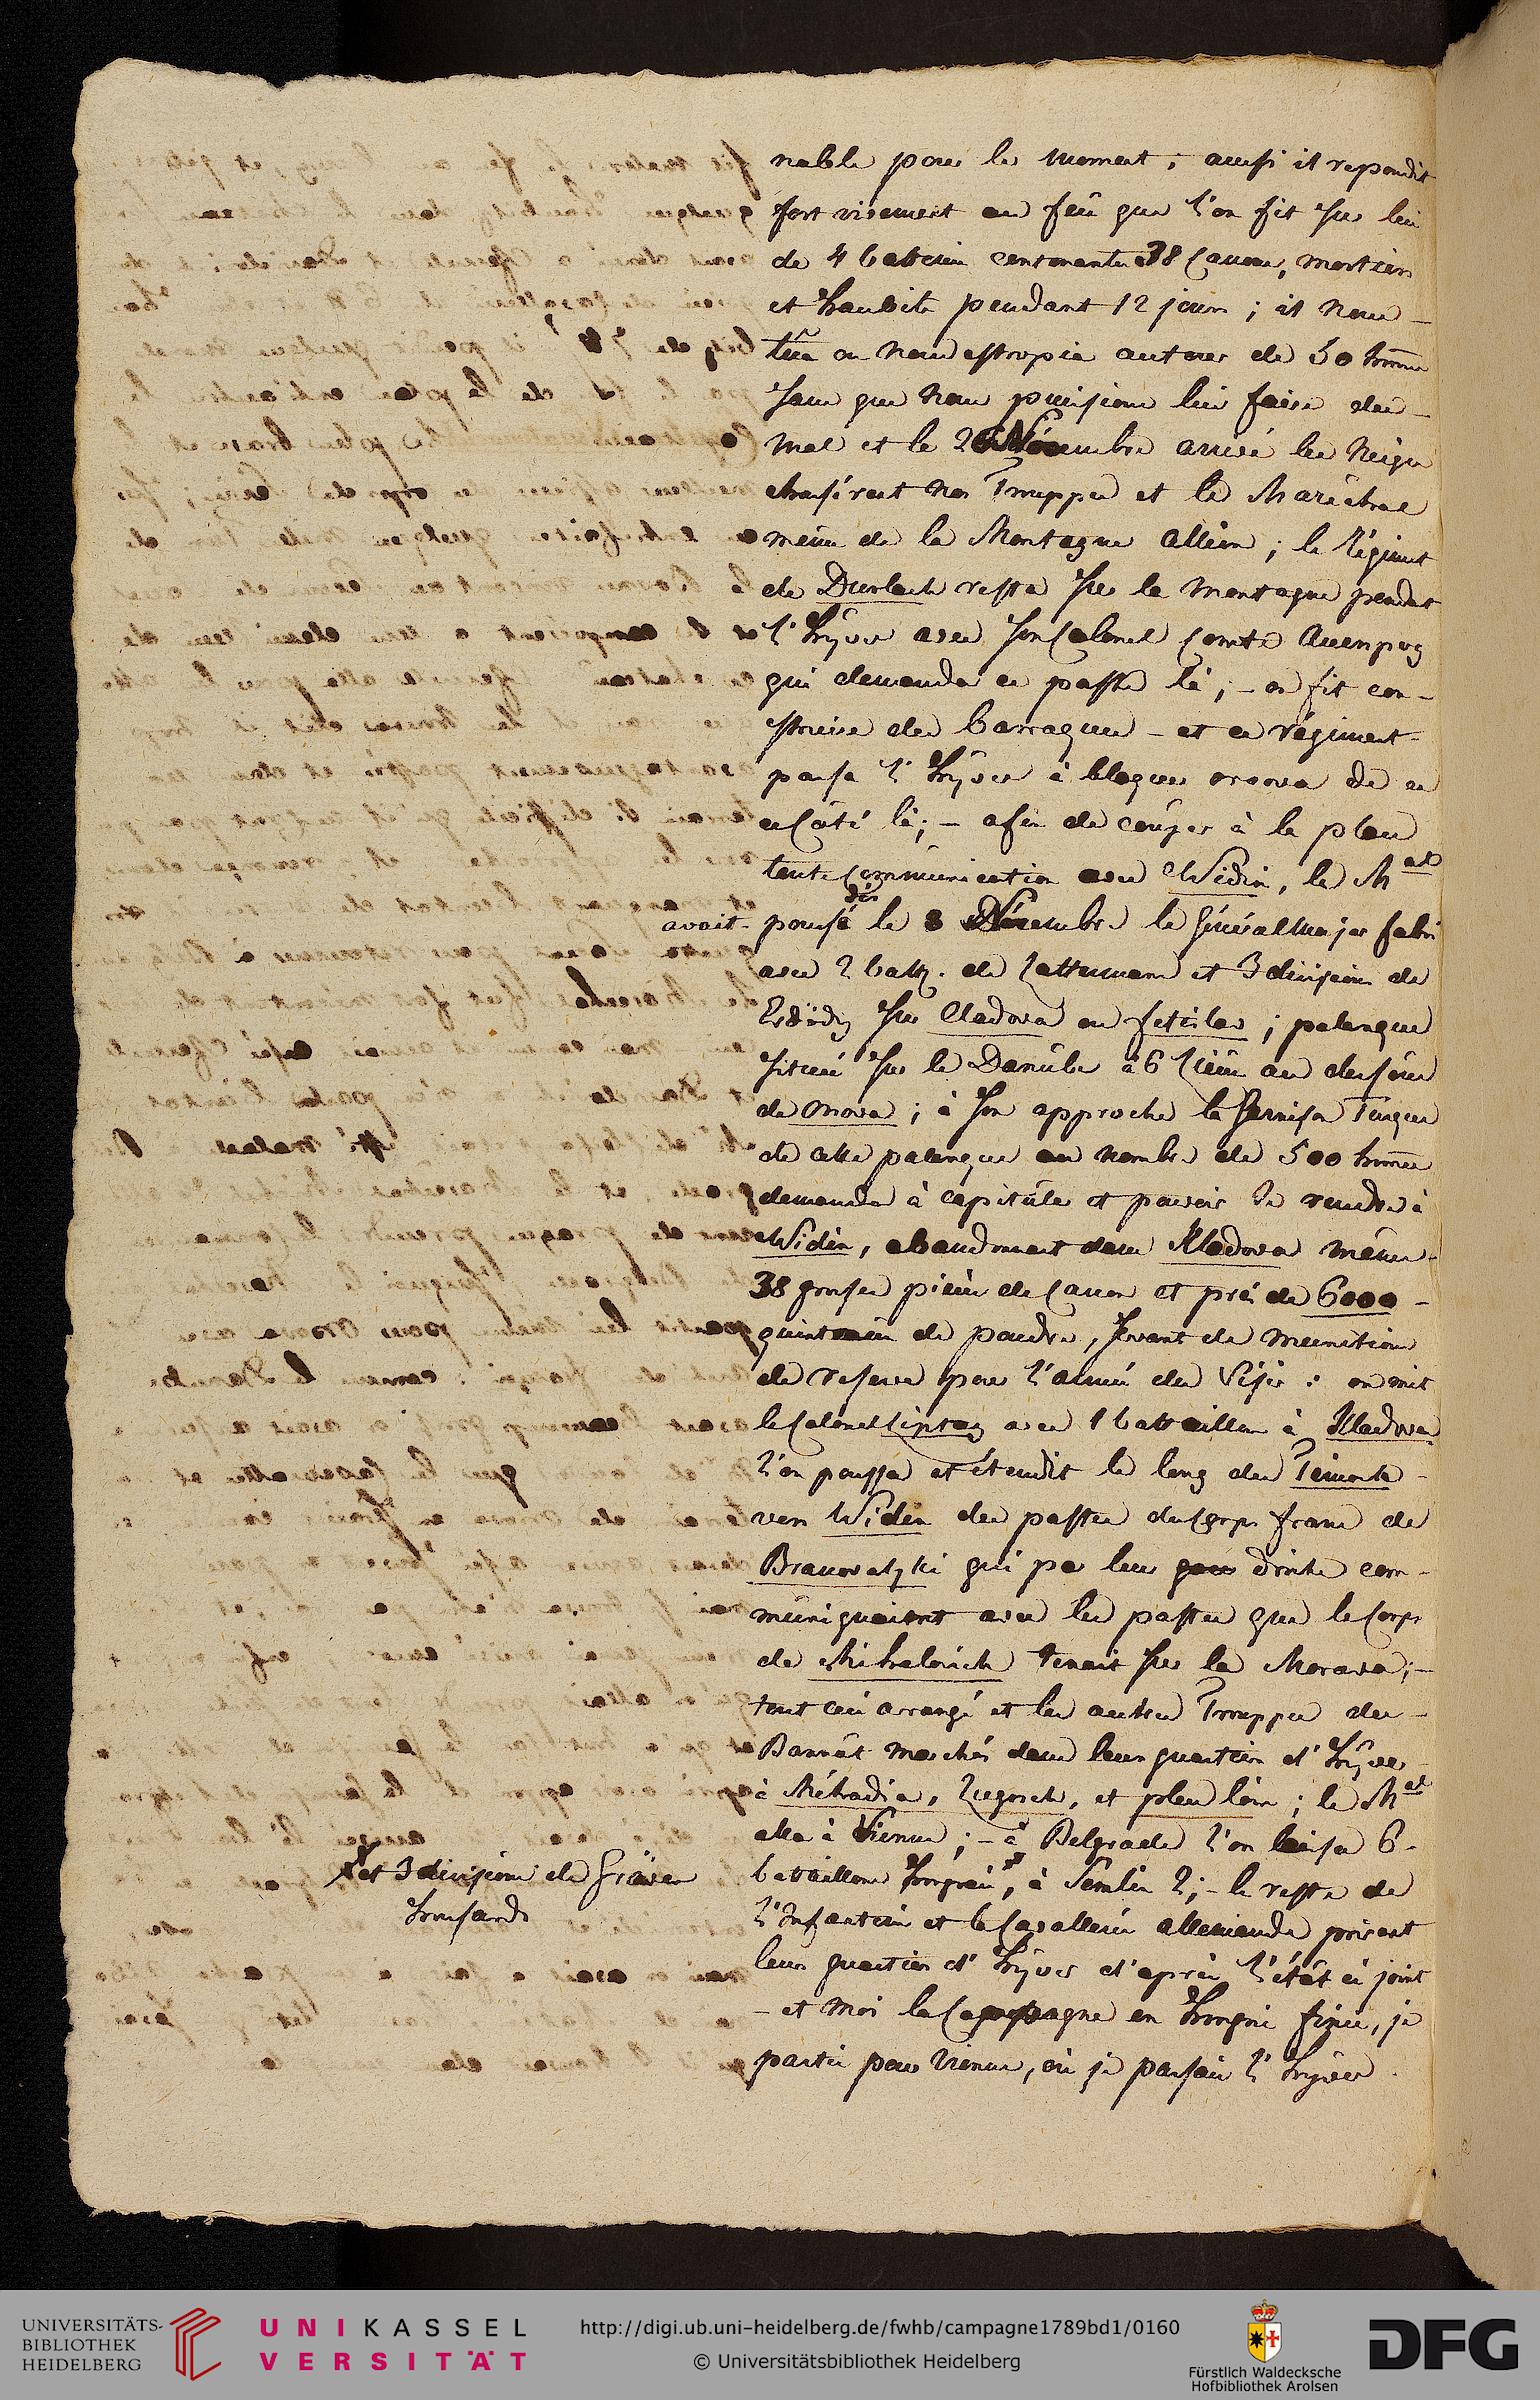 nable pour le moment; aussi il repondit
fort vivement au feu que l'on fit sur lui
de 4 batteries contenantes 38 Canons, mortiers
et haubits pendant 12 jours; il nous
tüa ou nous estropia autour de 50 hommes
sans que nous puissions lui faire du
mal et le 26 Novembre arrivé les neiges
chassérent nos Trouppes et le Maréchal
même de la Montagne Allion; le Régiment
de Durlach resta sur la montagne pendant
l'hÿver avec son Colonel Comte Auersperg
qui demanda ce poste là; – on fit con-
struire des barraques – et ce régiment
passa l'hÿver à bloquer orsova de ce
ce Coté là; – afin de couper à la place
toute Communication avec Widin, le Mal
avait poussé dés le 8 Novembre le Généralmajor fabri
avec 2 batt. de Lattermann et 3 divisions de
Erdödy sur Cladova ou fetislav; palanque
située sur le Danube à 6 Lieües au dessous
de orsova; à son approche la Garnison Turque
de cette palanque au nombre de 500 hommes
demanda à capituler et pouvoir se rendre à
Widin, abandonnant dans Kladova même
38 grosses pieces de Canon et près de 6000
quintaux de poudre, servant de munition
de reserve pour l'armée du Visir: on mit
le Colonel Liptay avec 1 battaillon à Kladova
l'on poussa et étendit le long du Timock
vers Widin des postes du Corps franc de
Branovatzki qui par leur droite com-
muniquaient avec les postes que le Corps
de Mihalovich tenait sur la Morava; –
tout ceci arrangé et les autres Trouppes du
Bannat marchées dans leurs quartiers d'hÿver
à Méhadia, Lugosch, et plus loin; le Mal
alla à Vienne; – à Belgrade l'on laissa 6
battaillons hongrois, à Semlin 2; – le reste de
x et 3 divisions de Gräven
housards
l'Infanterie et la Cavallerie allemande prirent
leurs quartiers d'hÿver d'après l'état ci joint
– et moi la Campagne en hongrie finie, je
partis pour Vienne, où je passais l'hÿver.
UNIVERSITÄTS-
BIBLIOTHEK
HEIDELBERG
UNIKASSEL
VERSITÄT
http://digi.ub.uni-heidelberg.de/fwhb/campagne1789bd1/0160
© Universitätsbibliothek Heidelberg
Fürstlich Waldecksche
Hofbibliothek Arolsen
DFG